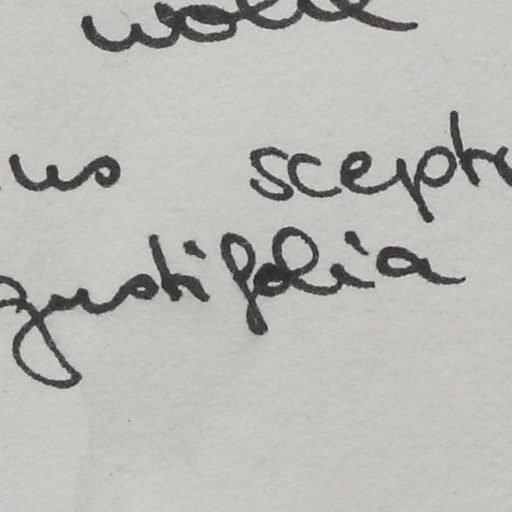 us sceptr
gustifolia